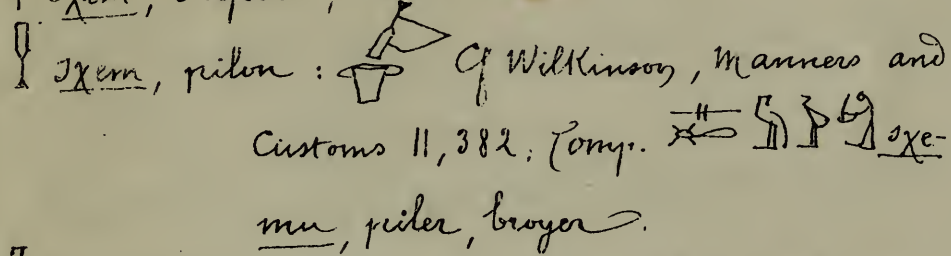 sχem, pilon : Cf Wilkinson, Manners and
Customs II, 382. Comp. sχe-
mu, piler, broyer.